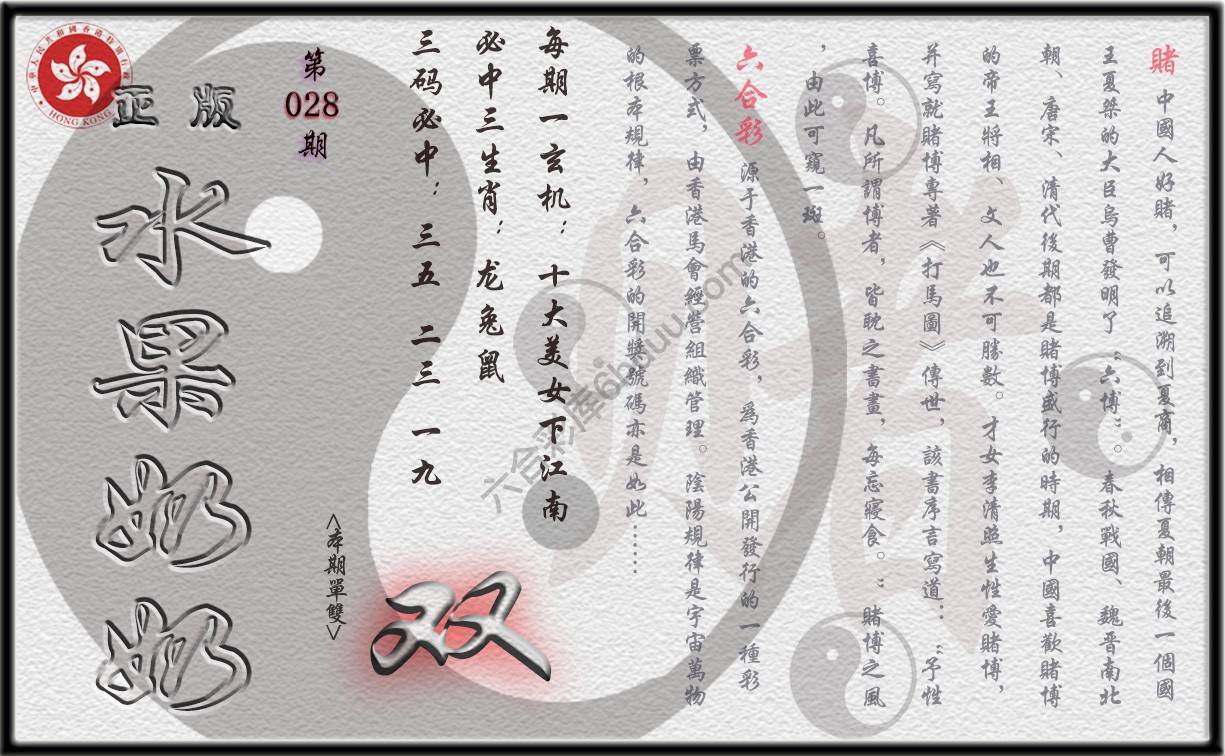 賭 中國人好賭，可以追溯到夏商，相傳夏朝最後一個國
王夏桀的大臣烏曹發明了“六博”。春秋戰國、魏晉南北
朝、唐宋、清代後期都是賭博盛行的時期，中國喜歡賭博
的帝王將相、文人也不可勝數。才女李清照生性愛賭博，
并寫就賭博專著《打馬圖》傳世，該書序言寫道：“予性
喜博。凡所謂博者，皆耽之書畫，每忘寢食。”賭博之風
，由此可窺一斑。
六合彩 源于香港的六合彩，為香港公開發行的一種彩
票方式，由香港馬會經營組織管理。陰陽規律是宇宙萬物
的根本規律，六合彩的開獎號碼亦是如此……
每期一玄机：十大美女下江南
必中三生肖：龙兔鼠
三码必中：三五 二三 一九
<本期單雙>
双
第
028
期
正版
水果奶奶
HONG KONG
六合彩库6hduu.com